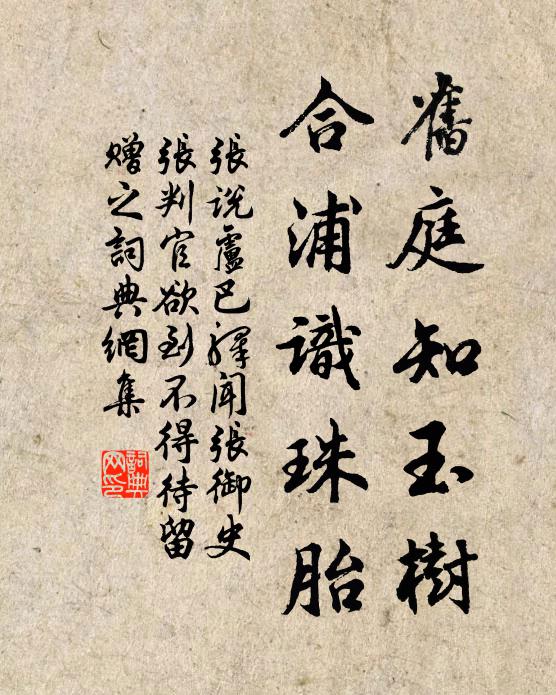 舊庭知玉樹
合浦識珠胎
張説盧巴驛聞張御史
張判官欲到不得待留
贈之詞典網集
詞典网印